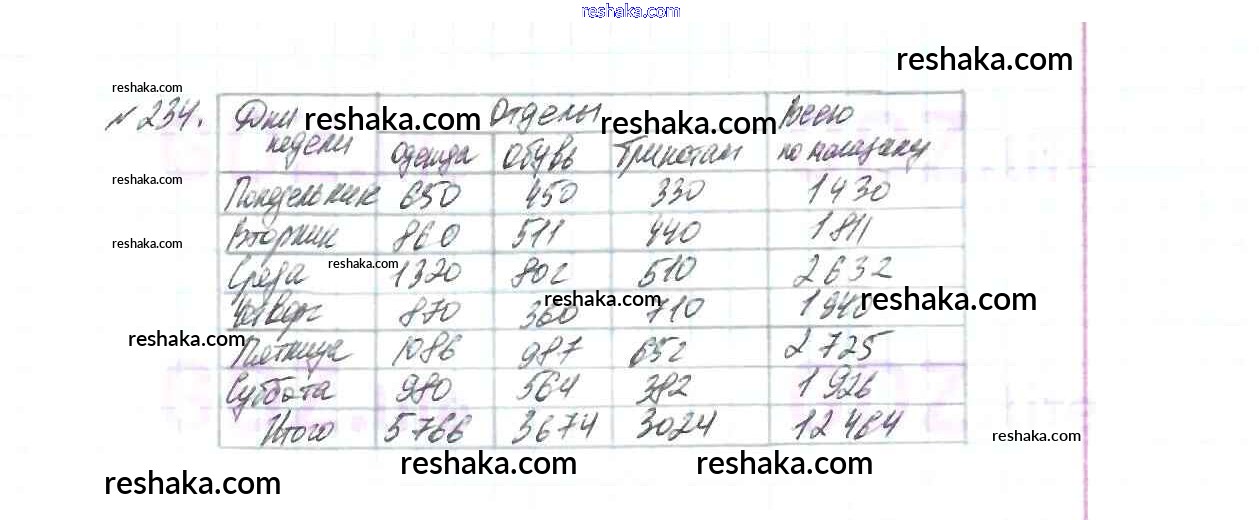 reshaka.com
reshaka.com
reshaka.com
№ 234. Дни reshaka.com Отделы reshaka.com Всего
недели одежда обувь трикотаж по магазину
reshaka.com
Понедельник 650 450 330 1430
reshaka.com
Вторник 860 511 440 1811
reshaka.com
Среда 1320 802 510 2632
reshaka.com reshaka.com
Четверг 870 360 710 1940
reshaka.com
Пятница 1086 987 652 2725
Суббота 980 564 382 1926
Итого 5766 3674 3024 12464
reshaka.com
reshaka.com reshaka.com
reshaka.com